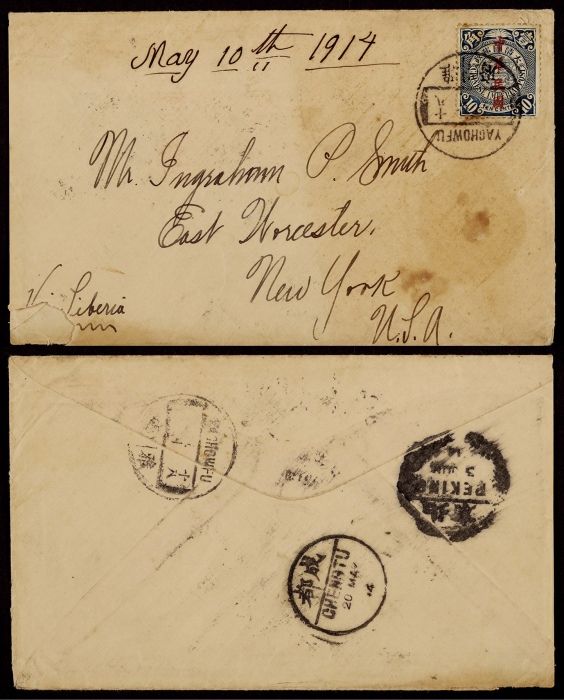 May 10th 1914
10
10
YACHOWFU
十八
Mr. Ingraham P. Smith
East Worcester,
New York
U.S.A.
Via Siberia
CHOWFU
十八
PEKING
3
成都
CHENGTU
20 MAY
14